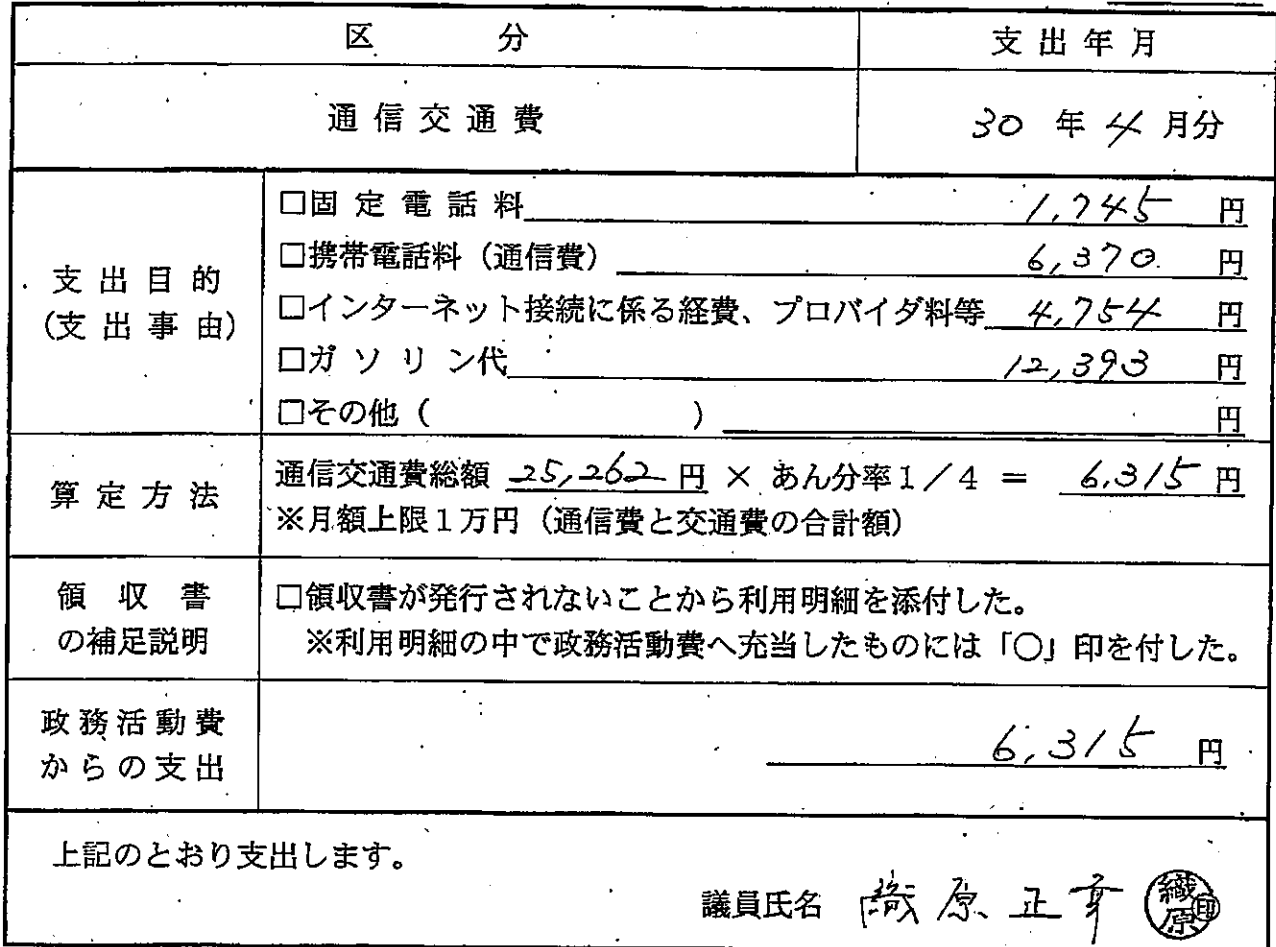 区 分 支出年月
通信交通費 30 年 4 月分
支出目的
(支出事由)
□固定電話料 1,745 円
□携帯電話料(通信費) 6,370 円
□インターネット接続に係る経費、プロバイダ料等 4,754 円
□ガソリン代 12,393 円
□その他( ) 円
算定方法
通信交通費総額 25,262 円 × あん分率1/4 = 6,315 円
※月額上限1万円(通信費と交通費の合計額)
領収書
の補足説明
□領収書が発行されないことから利用明細を添付した。
※利用明細の中で政務活動費へ充当したものには「○」印を付した。
政務活動費
からの支出
6,315 円
上記のとおり支出します。
議員氏名 織原正幸 織原 印